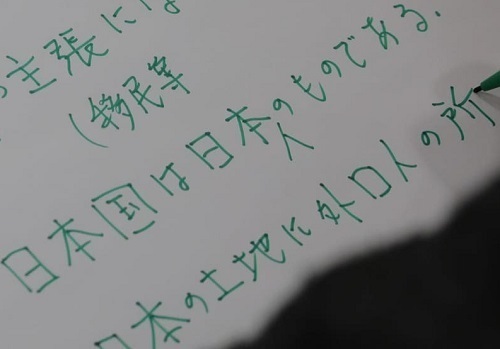 主張に
(移民等
日本国は日本人のものである.
日本の土地に外口人の所